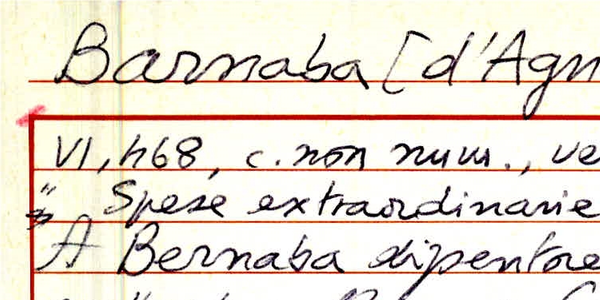 Barnaba [d'Agn
VI, 468, c. non num., ve
" Spese extraordinarie
A Bernaba dipentore